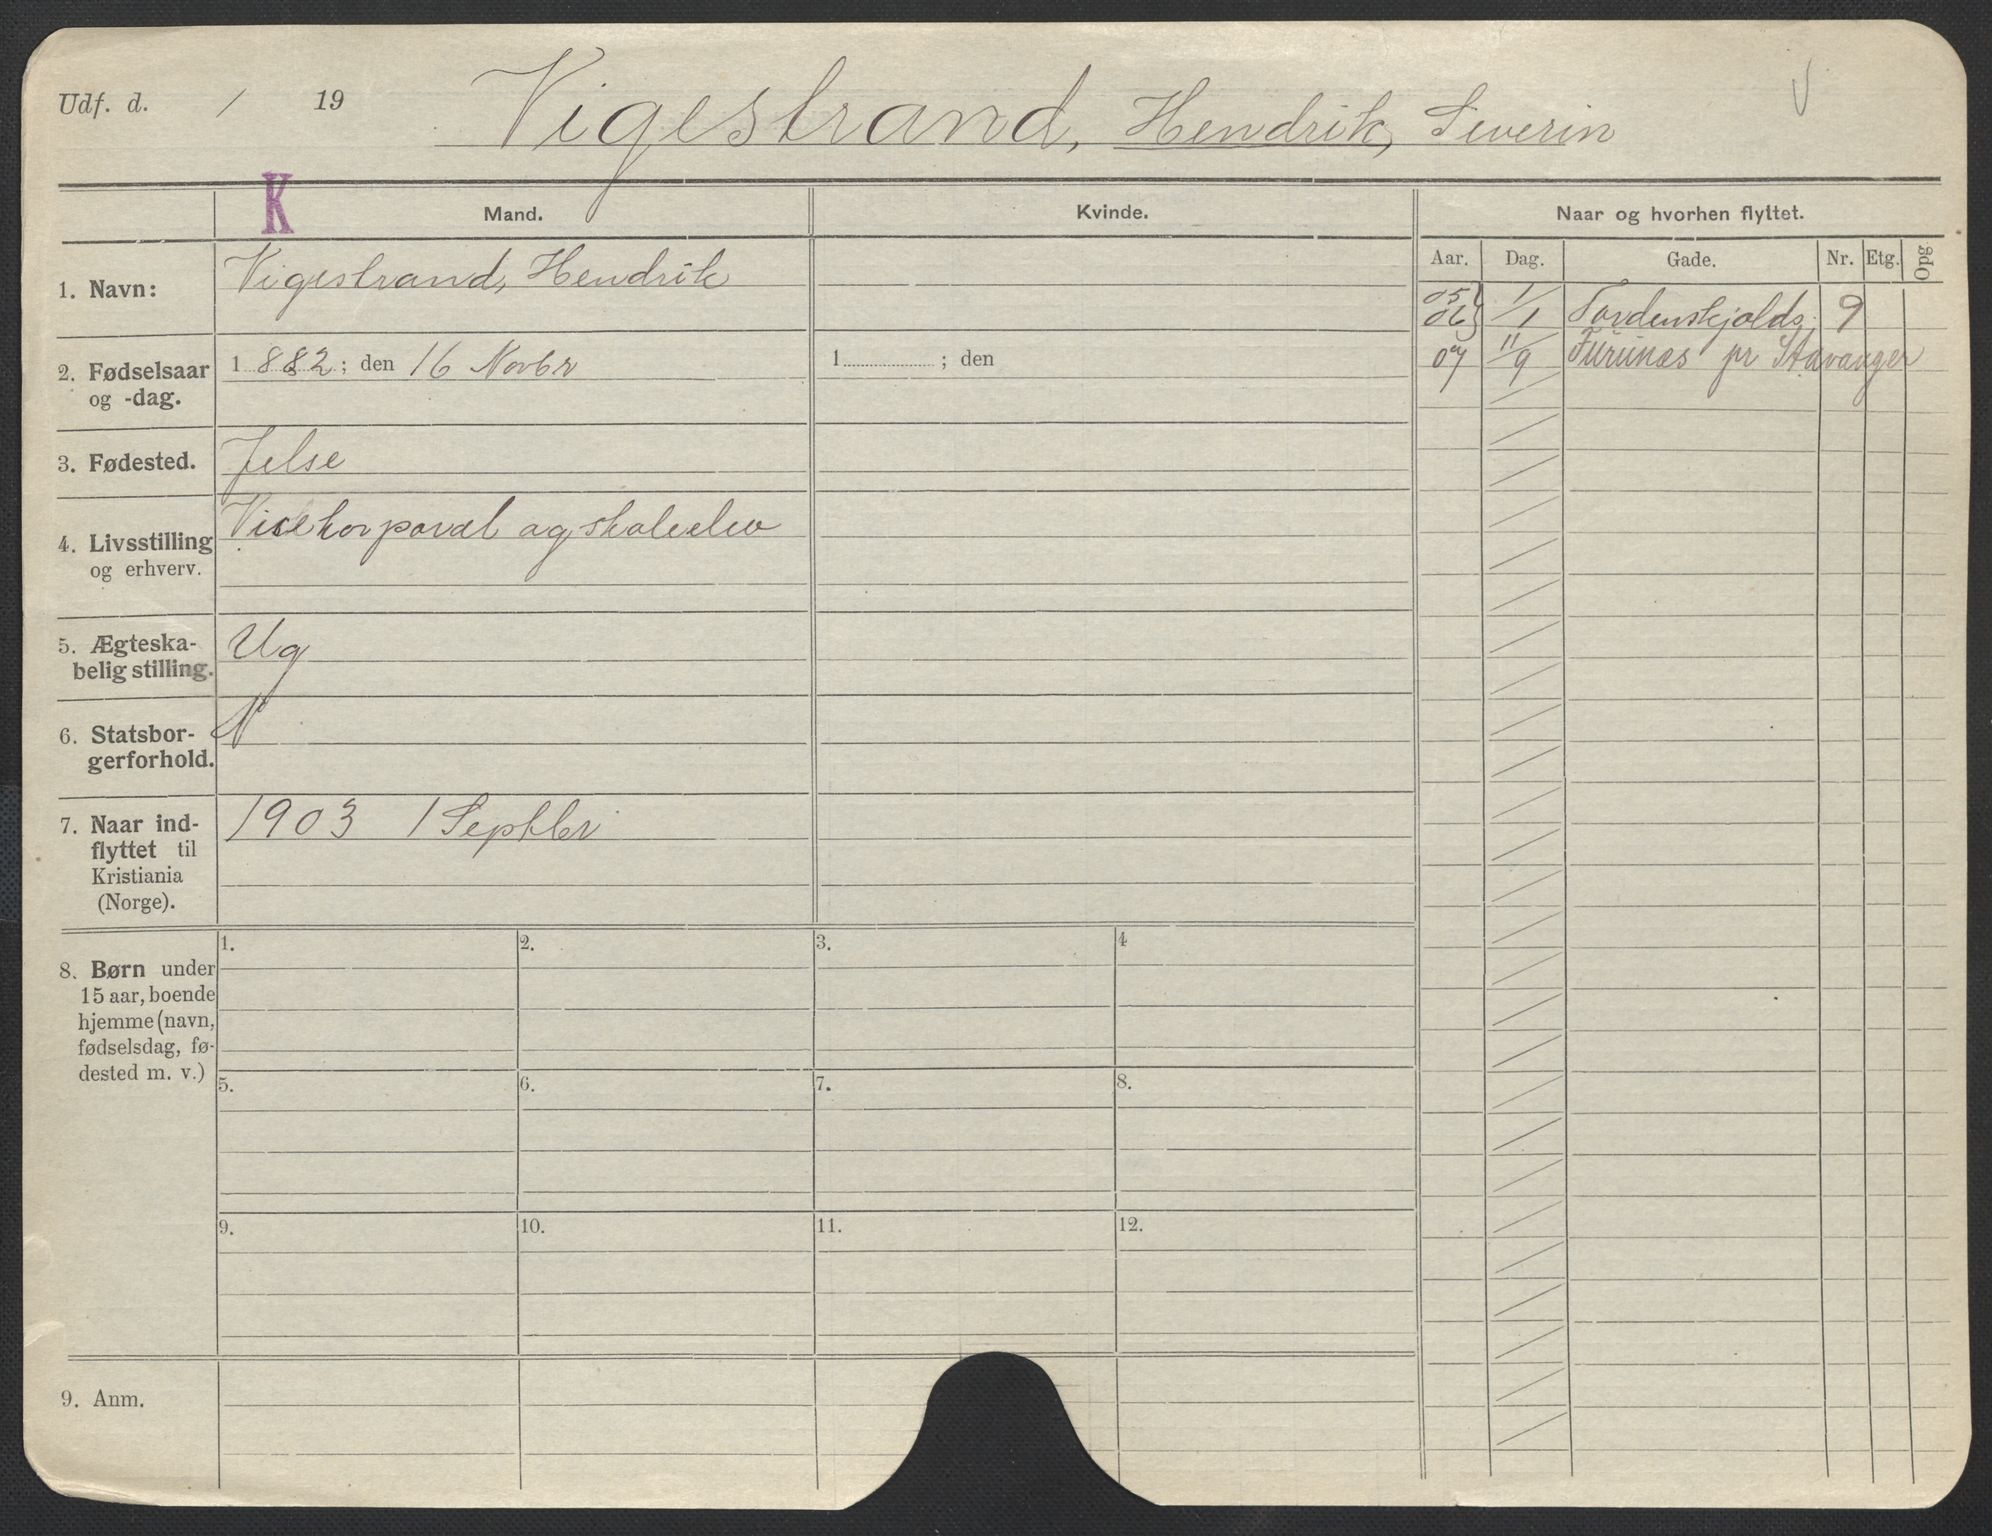 Udf. d. / 19
Vigestrand, Hendrik, Severin
K
Mand. Kvinde. Naar og hvorhen flyttet.
Aar. Dag. Gade. Nr. Etg. Opg
1. Navn: Vigestrand, Hendrik
05 06 1/1 Tordenskjolds 9
07 11/9 Furunæs pr Stavanger
2. Fødselsaar og -dag. 1 882 ; den 16 Novbr 1 ; den
3. Fødested. Jelse
4. Livsstilling og erhverv. Visekorporal og skoleelev
5. Ægteska-
belig stilling. Ug
6. Statsbor-
gerforhold. N
7. Naar ind-
flyttet til
Kristiania
(Norge). 1903 1 Septbr
8. Børn under
15 aar, boende
hjemme (navn,
fødselsdag, fø-
dested m. v.)
1. 2. 3. 4
5. 6. 7. 8.
9. 10. 11. 12.
9. Anm.